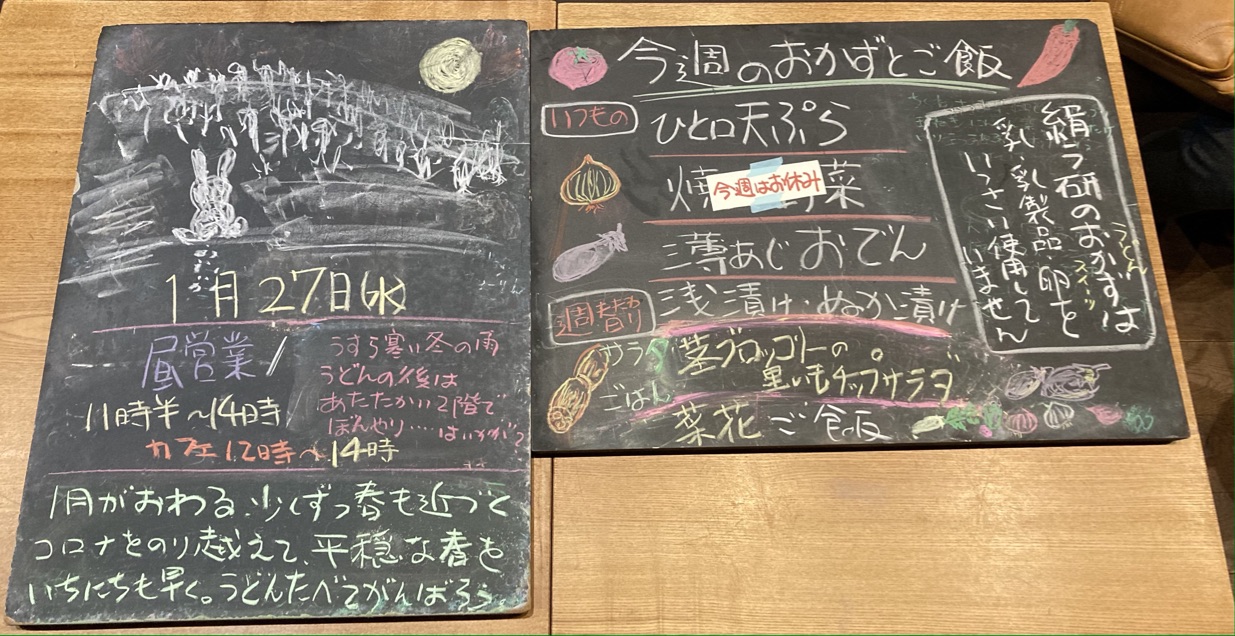 1月27日(水)
昼営業/
11時半~14時
カフェ12時~14時
うすら寒い冬の雨
うどんの後は
あたたかい2階で
ぼんやり……はいかが?
1月がおわる。少しずつ春も近づく
コロナをのり越えて、平穏な春を
いちにちも早く。うどんたべてがんばろう。
今週のおかずとご飯
いつもの
ひと口天ぷら
焼 菜
今週はお休み
薄あじおでん
週替り
浅漬け・ぬか漬け
サラダ
茎ブロッコリーの
里いもチップサラダ
ごはん
菜花ご飯
絹う研のおかずは
うどん
スイーツ
乳・乳製品 卵と
いっさい使用して
いません